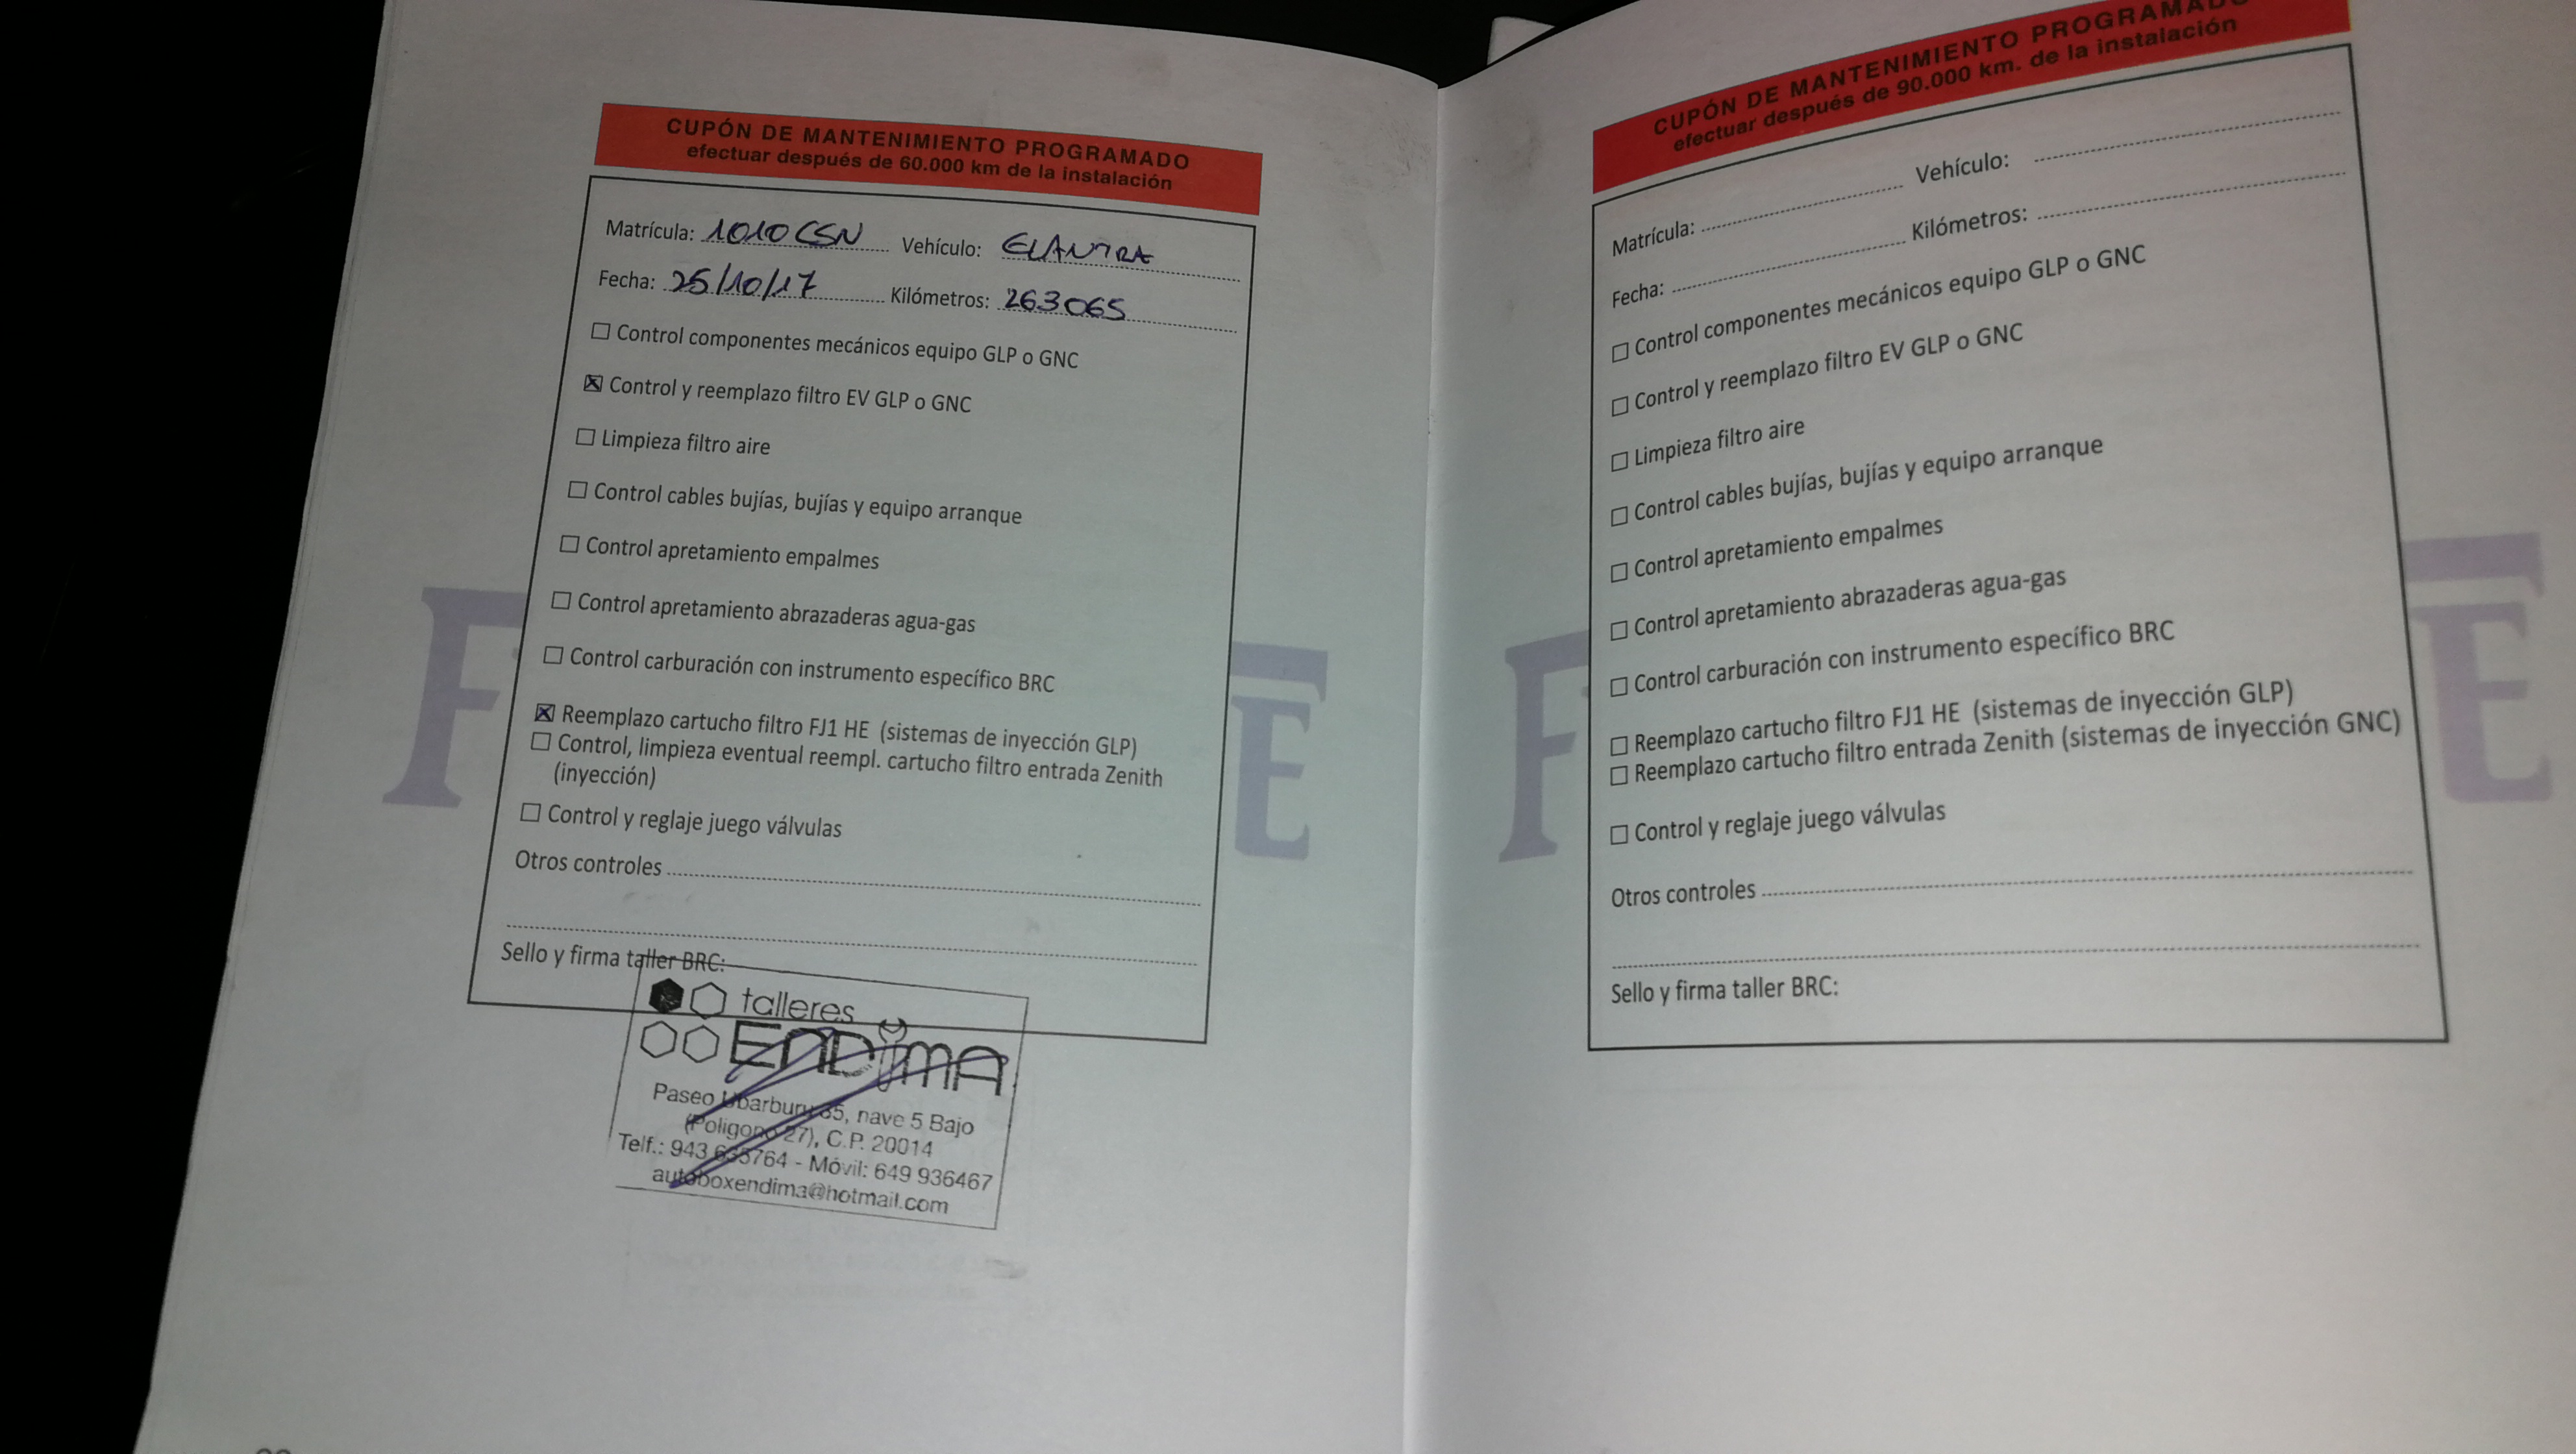 CUPÓN DE MANTENIMIENTO PROGRAMADO
efectuar después de 60.000 km de la instalación
Matrícula: 1010CSN Vehículo: ELANTRA
Fecha: 25/10/17 Kilómetros: 263065
Control componentes mecánicos equipo GLP o GNC
Control y reemplazo filtro EV GLP o GNC
Limpieza filtro aire
Control cables bujías, bujías y equipo arranque
Control apretamiento empalmes
Control apretamiento abrazaderas agua-gas
Control carburación con instrumento específico BRC
Reemplazo cartucho filtro FJ1 HE (sistemas de inyección GLP)
Control, limpieza eventual reempl. cartucho filtro entrada Zenith
(inyección)
Control y reglaje juego válvulas
Otros controles
Sello y firma taller BRC:
talleres
ENDIMA
Paseo Ubarburu 85, nave 5 Bajo
(Poligono 27), C.P. 20014
Telf.: 943 - Móvil: 649 936467
autoboxendima@hotmail.com
F E
CUPÓN DE MANTENIMIENTO PROGRAMADO
efectuar después de 90.000 km. de la instalación
Matrícula: Vehículo:
Fecha: Kilómetros:
Control componentes mecánicos equipo GLP o GNC
Control y reemplazo filtro EV GLP o GNC
Limpieza filtro aire
Control cables bujías, bujías y equipo arranque
Control apretamiento empalmes
Control apretamiento abrazaderas agua-gas
Control carburación con instrumento específico BRC
Reemplazo cartucho filtro FJ1 HE (sistemas de inyección GLP)
Reemplazo cartucho filtro entrada Zenith (sistemas de inyección GNC)
Control y reglaje juego válvulas
Otros controles
Sello y firma taller BRC:
F E